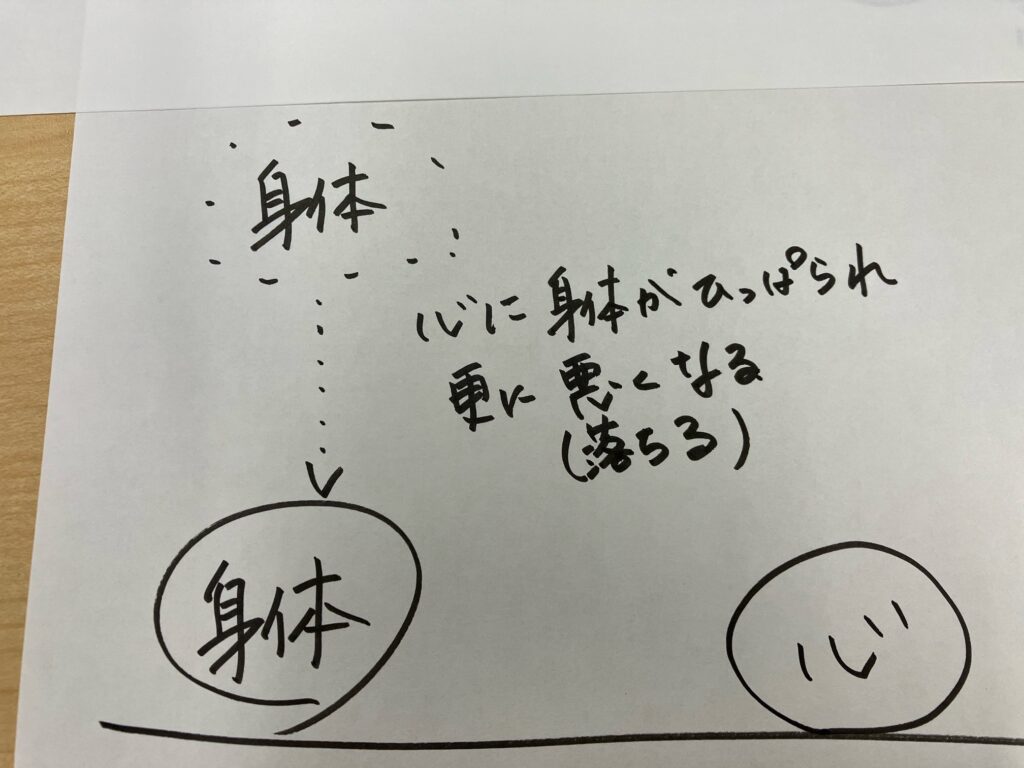 身体
心に身体がひっぱられ
更に悪くなる
(落ちる)
身体
心